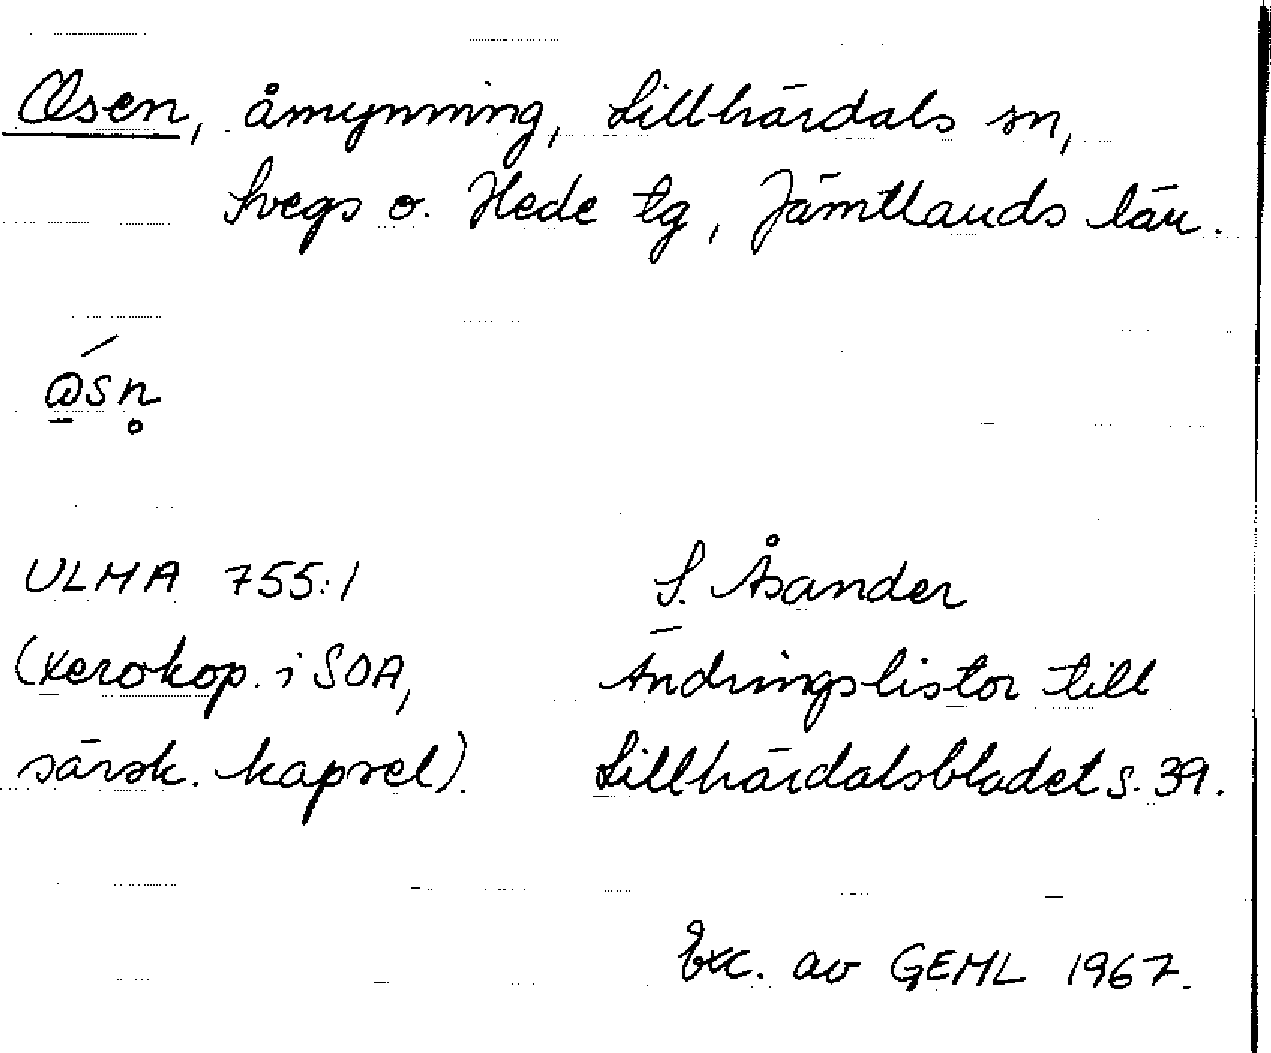 Osen, åmynning, Lillhärdals sn,
Svegs o. Hede tg, Jämtlands län.
ULMA 755:1 S. Åsander
(xerokop. i SOA, Ändringslistor till
särsk. kapsel). Lillhärdalsbladet s. 39.
Exc. av GEML 1967.